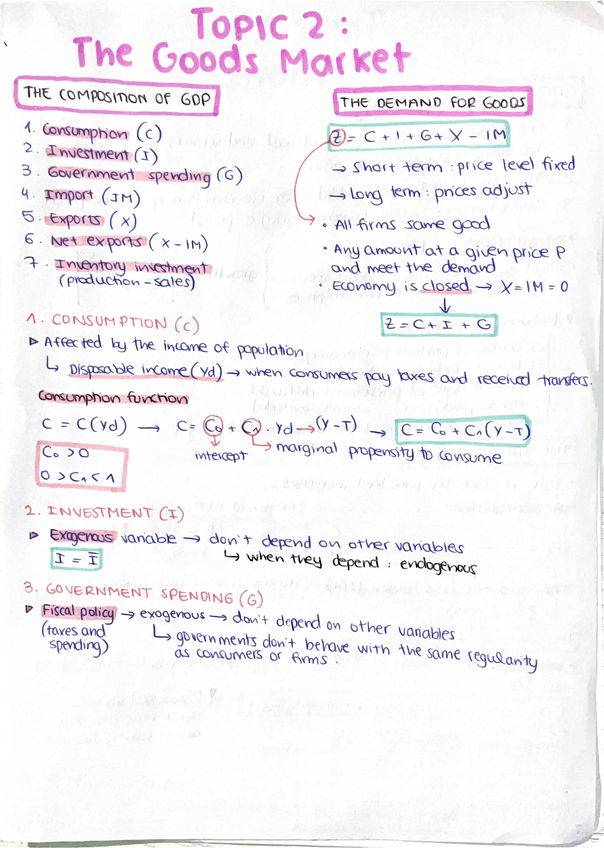 TOPIC 2:
The Goods Market
THE COMPOSITION OF GDP
1. Consumption (C)
2. Investment (I)
3. Government spending (G)
4. Import (IM)
5. Exports (X)
6. Net exports (X-IM)
7. Inventory investment
(production-sales)
THE DEMAND FOR GOODS
Z = C + I + G + X - IM
→ Short term: price level fixed
→ Long term: prices adjust
• All firms same good
• Any amount at a given price P
and meet the demand
• Economy is closed → X=IM=0
↓
Z = C + I + G
1. CONSUMPTION (C)
▷ Affected by the income of population
↳ Disposable income (Yd) → when consumers pay taxes and received transfers.
Consumption function
C = C(Yd) → C = C₀ + C₁ · Yd → (Y-T) → C = C₀ + C₁(Y-T)
intercept
marginal propensity to consume
C₀ > 0
0 > C₁ < 1
2. INVESTMENT (I)
▷ Exogenous variable → don't depend on other variables
↳ when they depend: endogenous
I = Ī
3. GOVERNMENT SPENDING (G)
▷ Fiscal policy → exogenous → don't depend on other variables
(taxes and
spending)
↳ governments don't behave with the same regularity
as consumers or firms.